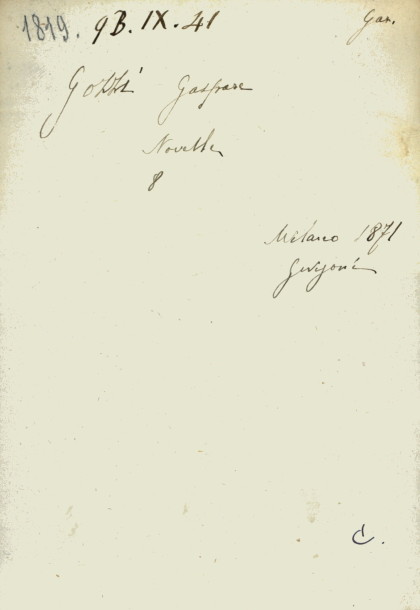 1819. 9B.IX.41 Gar.
Gozzi Gaspare
Novelle
8
Milano 1871
Guigoni
C.